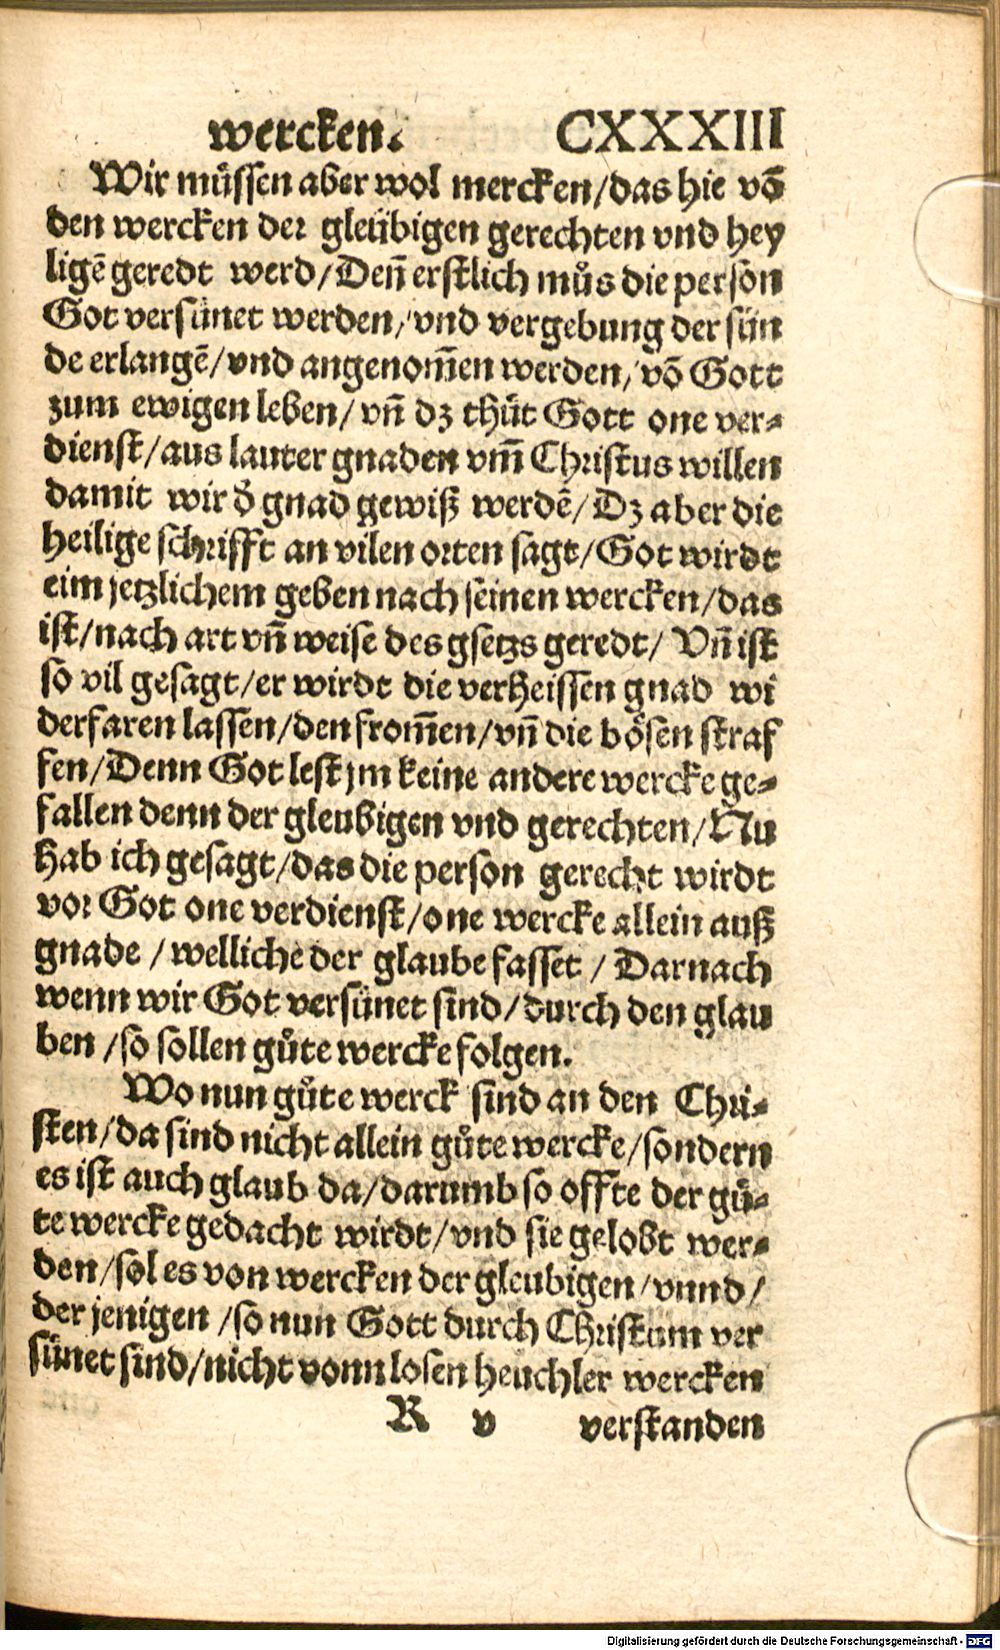 wercken. CXXXIII
Wir müssen aber wol mercken/das hie võ
den wercken der gleübigen gerechten vnd hey
ligẽ geredt werd/Deñ erstlich můs die person
Got versünet werden/vnd vergebung der sün
de erlangẽ/vnd angenom̃en werden/võ Gott
zum ewigen leben/vñ dz thůt Gott one ver-
dienst/aus lauter gnaden vm̃ Christus willen
damit wir d̕ gnad gewiß werdẽ/Dz aber die
heilige schrifft an vilen orten sagt/Got wirdt
eim jetzlichem geben nach seinen wercken/das
ist/nach art vñ weise des gsetzs geredt/Vñ ist
so vil gesagt/er wirdt die verheissen gnad wi
derfaren lassen/den from̃en/vñ die bösen straf
fen/Denn Got lest jm keine andere wercke ge-
fallen denn der gleubigen vnd gerechten/Nu
hab ich gesagt/das die person gerecht wirdt
vor Got one verdienst/one wercke allein auß
gnade/welliche der glaube fasset/Darnach
wenn wir Got versünet sind/durch den glau
ben/so sollen gůte wercke folgen.
Wo nun gůte werck sind an den Chri-
sten/da sind nicht allein gůte wercke/sondern
es ist auch glaub da/darumb so offte der gů-
te wercke gedacht wirdt/vnd sie gelobt wer-
den/sol es von wercken der gleubigen/vnnd/
der jenigen/so nun Gott durch Christum ver
sünet sind/nicht vonn losen heuchler wercken
R v verstanden
Digitalisierung gefördert durch die Deutsche Forschungsgemeinschaft - DFG